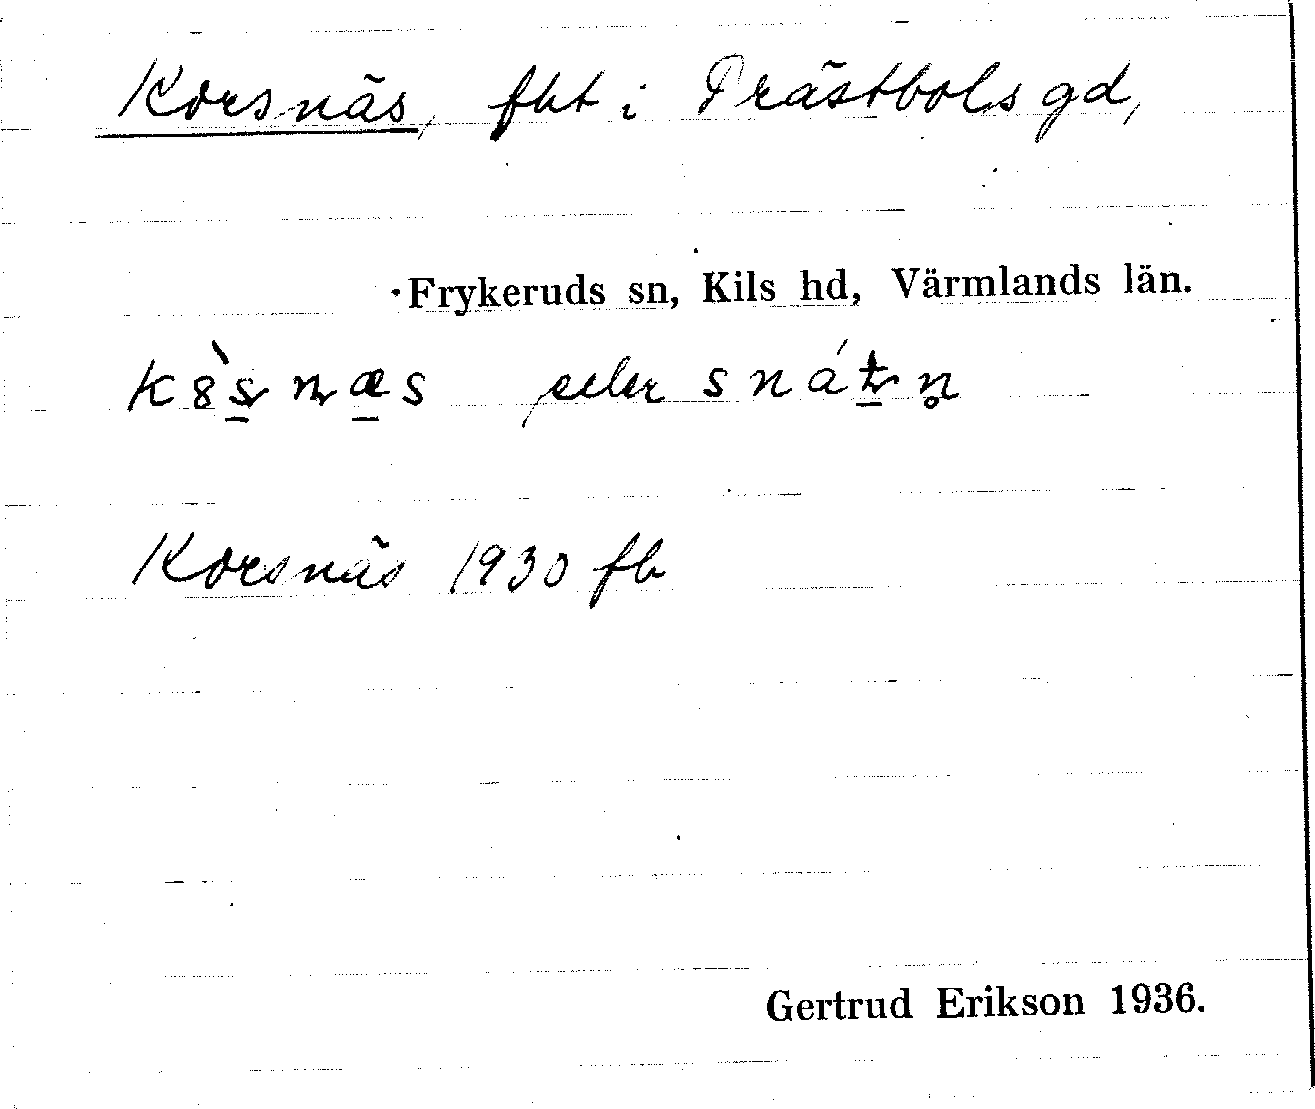 Korsnäs, fht i Prästbols gd,
Frykeruds sn, Kils hd, Värmlands län.
eller
Korsnäs 1930 fb
Gertrud Erikson 1936.